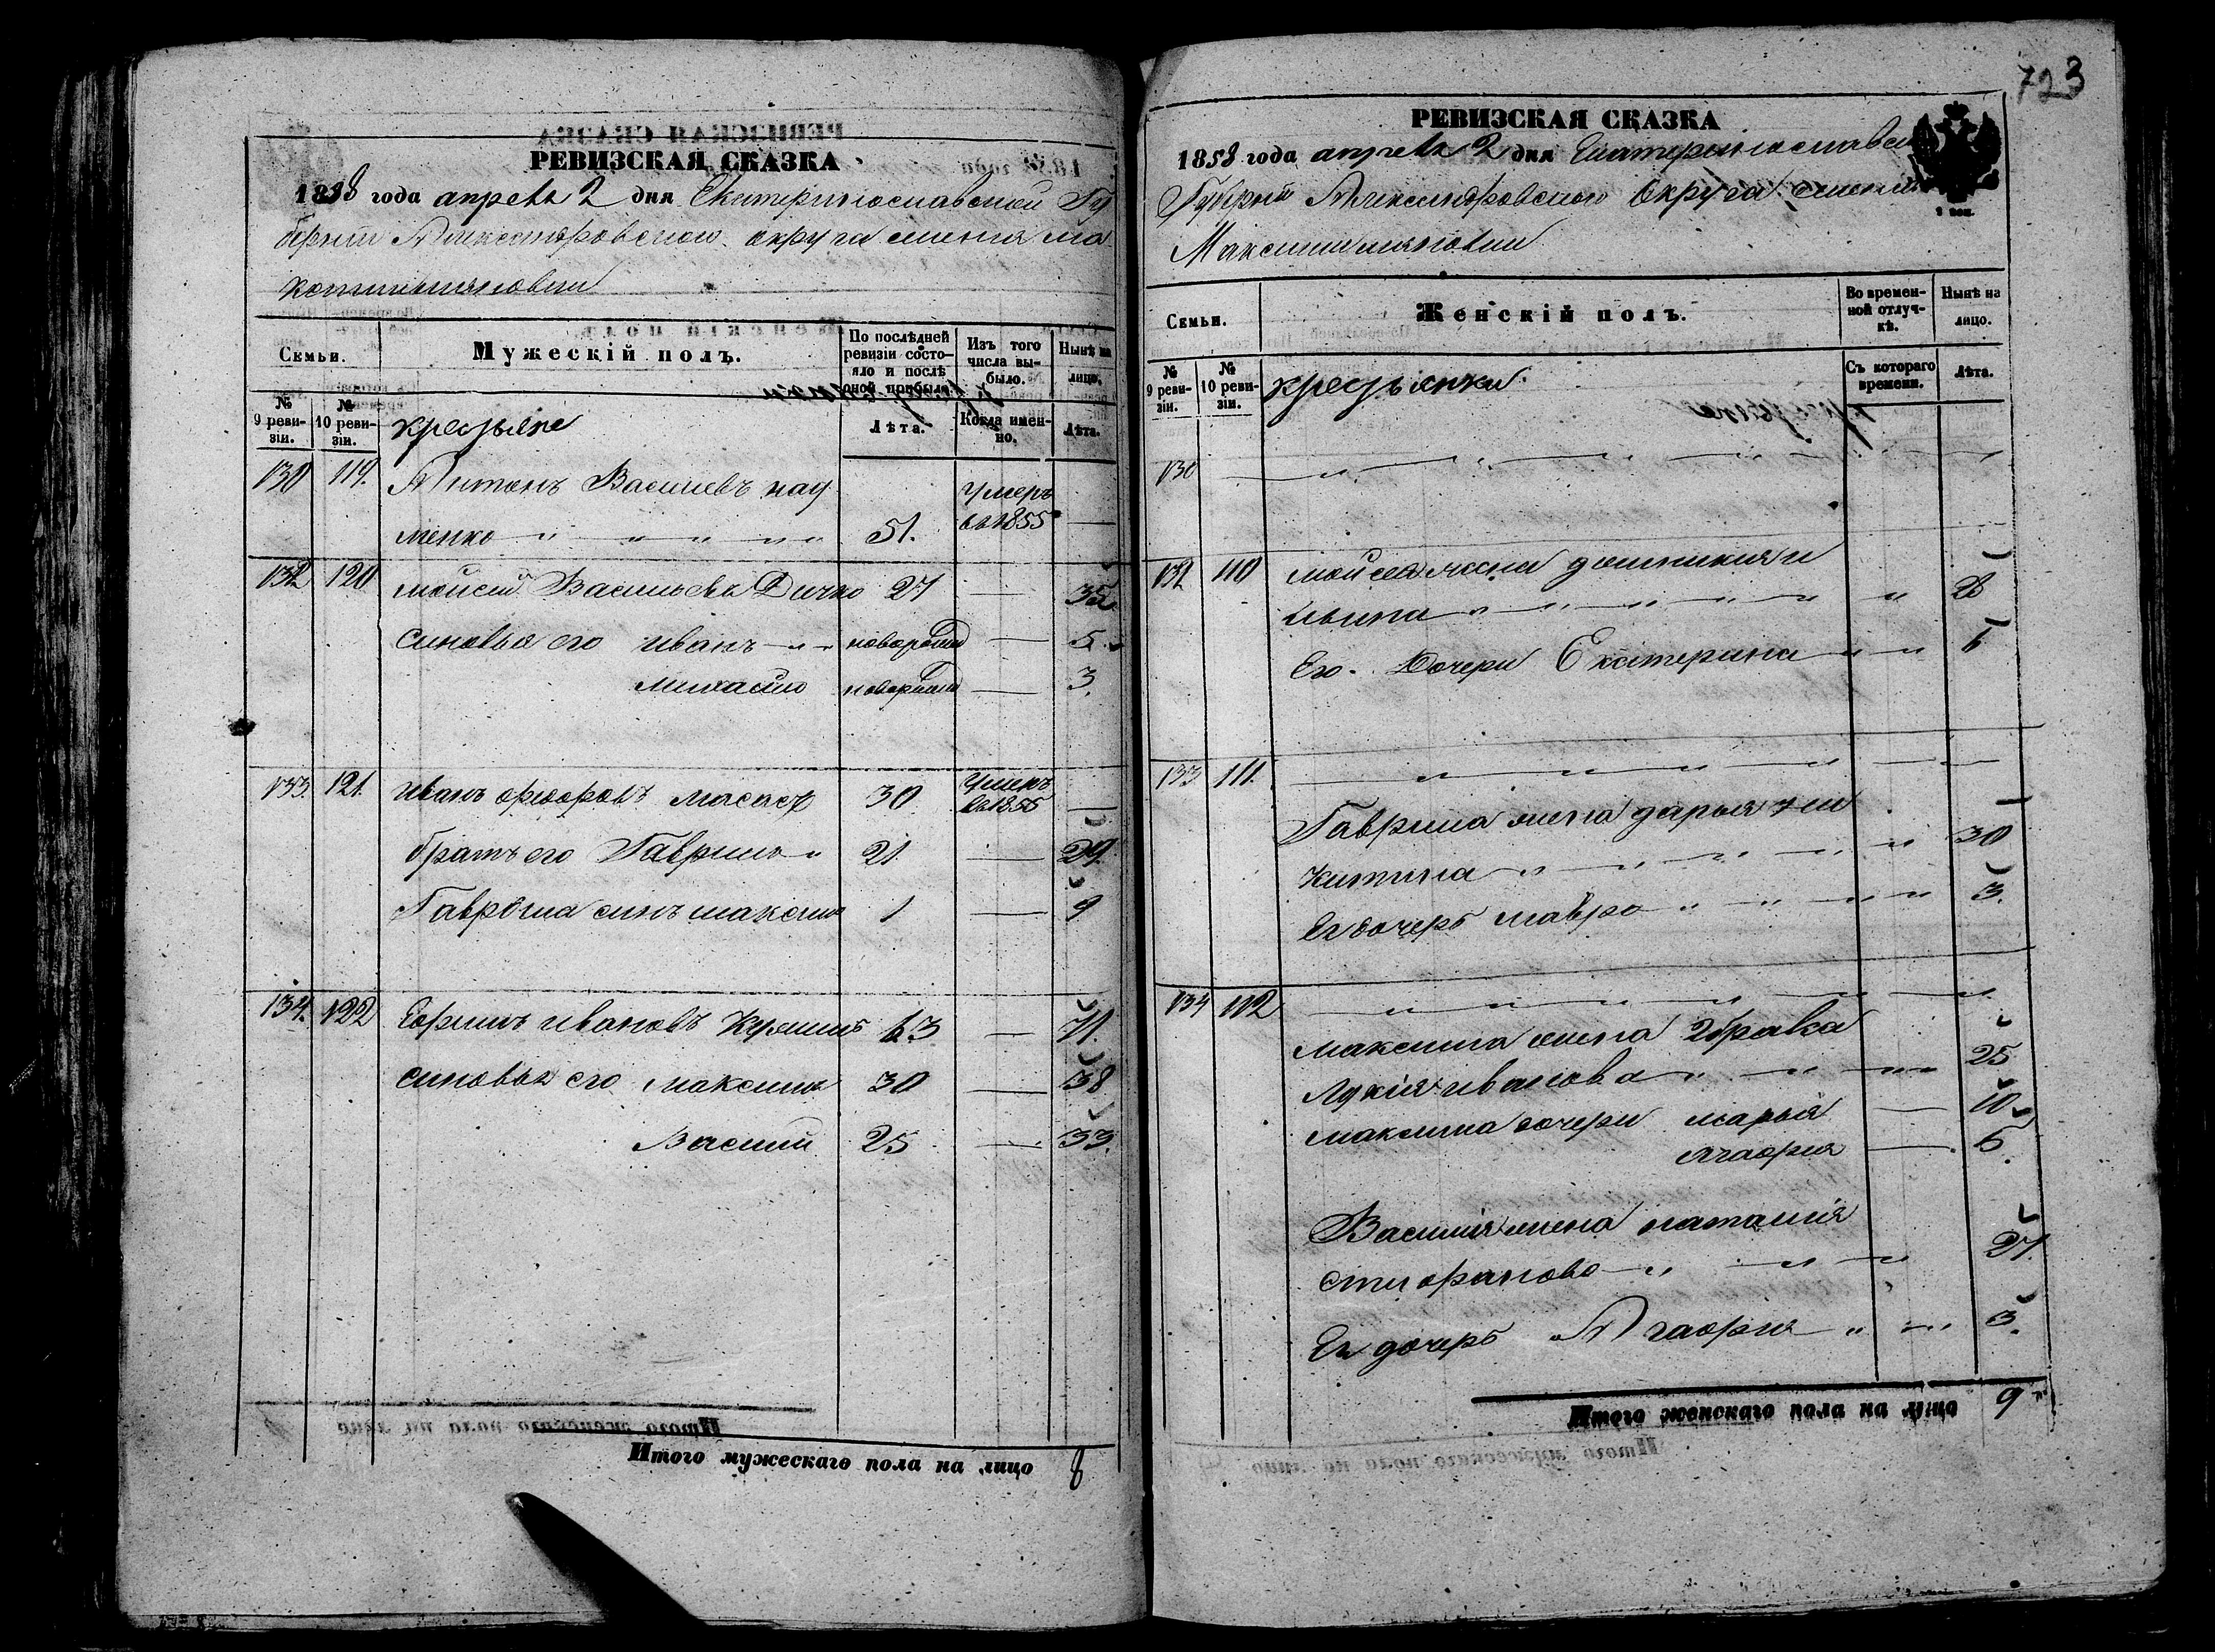 723
РЕВИЗСКАЯ СКАЗКА
1858 года апреля 2 дня Екатеринославской Гу
берніи Александровского округа имения Ма
ксимилияновки
Семьи.
Мужескій полъ.
По послѣдней ревизіи состояло и послѣ оной прибыло.
Изъ того числа выбыло.
Нынѣ на лицо.
№ 9 ревизіи.
№ 10 ревизіи.
крестьяне
Лѣта.
Когда именно.
Лѣта.
130 119. Антонъ Васильевъ Нау
менко 51. умеръ въ 1855
132 120 Мойсей Васильевъ Дичко 27 35
синовья его Иванъ новорожд 5
Михайло новорожд 3.
133. 121. Иванъ Федоровъ 30 умеръ въ 1855
братъ его Гаврило 21. 29.
Гаврила синъ Максимъ 1 9
134. 122 Ефимъ Ивановъ 63 71.
синовья его Максимъ 30 38
Василий 25 33.
Итого мужескаго пола на лицо 8
РЕВИЗСКАЯ СКАЗКА
1858 года апреля 2 дня Екатеринославской
Губерніи Александровского Округа имения
Максимилияновки
Семьи.
Женскій полъ.
Во временной отлучкѣ.
Нынѣ на лицо.
№ 9 ревизіи.
№ 10 ревизіи.
крестьянки
Съ котораго времени.
Лѣта.
130
132 110 Мойсея жена
26
Его дочери Екатерина 6
133 111.
Гаврила жена Дарья Ни
китина 30
Ег дочерь Мавра 3.
134 112
Максима жена 2 брака
Лукія Иванова 25
Максима дочери Марья 10
Агафия 6.
Василия жена Наталия
Стефанова 27.
Ег дочерь Агафия 3.
Итого женскаго пола на лицо 9